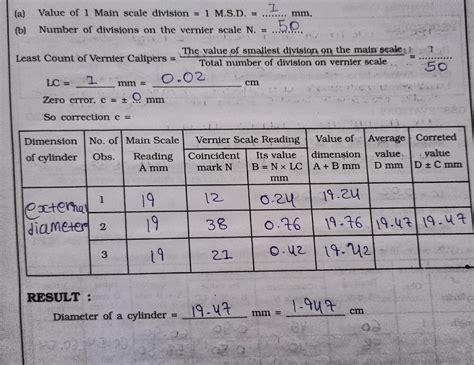 (a) Value of 1 Main scale division = 1 M.S.D. = ....1.... mm.
(b) Number of divisions on the vernier scale N. = ...50...
Least Count of Vernier Calipers = The value of smallest division on the main scale / Total number of division on vernier scale = 1 / 50
LC = 1 mm = 0.02 cm
Zero error, c = ± 0 mm
So correction c =
Dimension of cylinder | No. of Obs. | Main Scale Reading A mm | Vernier Scale Reading | Value of dimension A + B mm | Average value D mm | Correted value D ± C mm
Coincident mark N | Its value B = N × LC mm
external diameter
1 | 19 | 12 | 0.24 | 19.24
2 | 19 | 38 | 0.76 | 19.76 | 19.47 | 19.47
3 | 19 | 21 | 0.42 | 19.42
RESULT :
Diameter of a cylinder = 19.47 mm = 1.947 cm